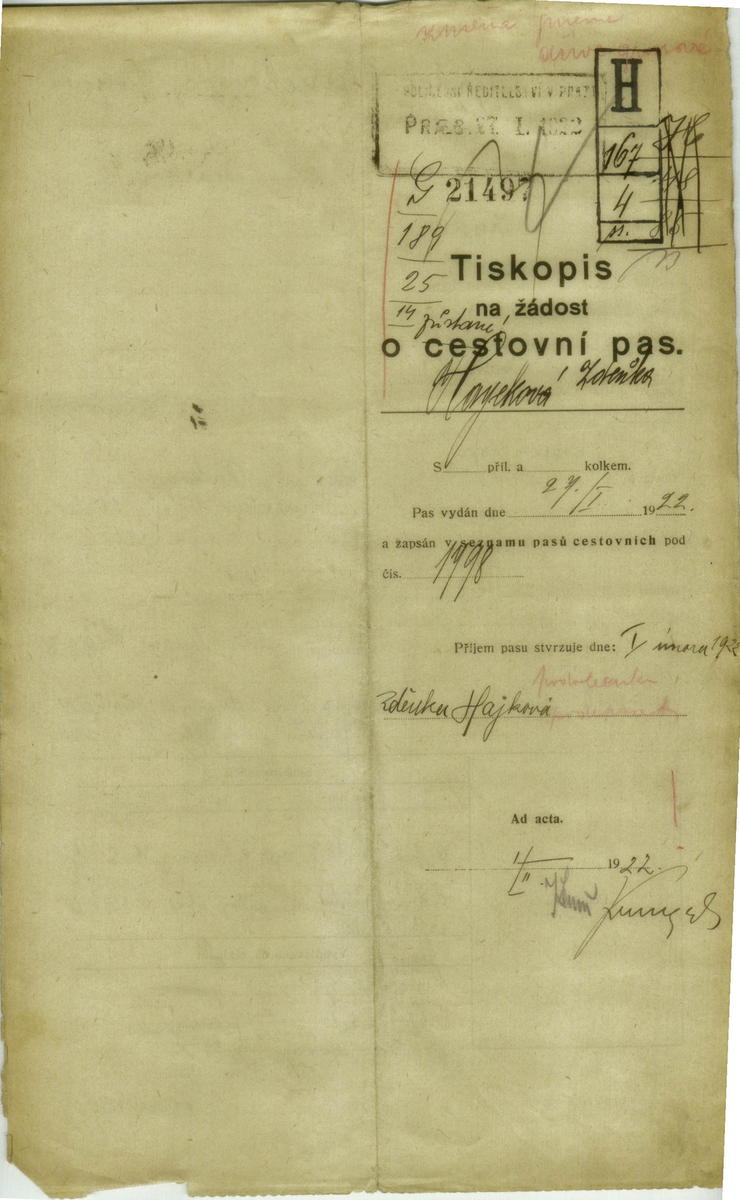 H
POLICEJNÍ ŘEDITELSTVÍ V PRAZE
PRÆS. 27. I. 1922
167
4
21497
G
189
25
14
zůstane
Tiskopis
na žádost
o cestovní pas.
Hayeková Zdenka
S příl. a kolkem.
Pas vydán dne 27./I. 1922.
a zapsán v seznamu pasů cestovních pod
čís. 1998
Příjem pasu stvrzuje dne: I února 1922
Zdeňka Hajková
Ad acta.
1/II 1922.